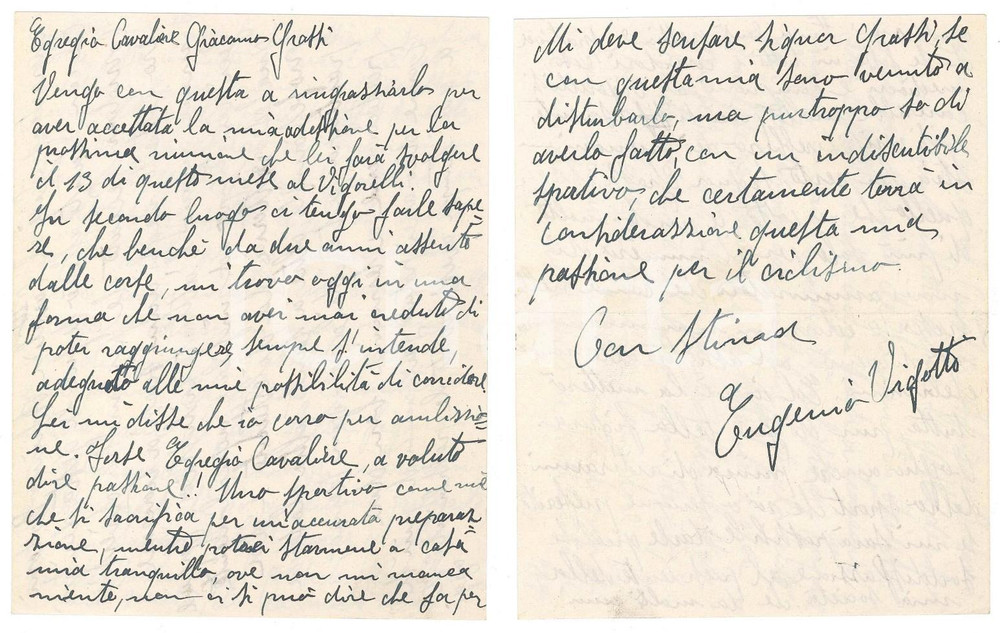 Egregio Cavaliere Giacomo Grassi
Vengo con questa a ringrassiarlo per
aver accettata la mia adessione per la
prossima riunione che lei farà svolgere
il 13 di questo mese al Vigorelli.
In secondo luogo ci tengo farle sape=
re, che benchè da due anni assente
dalle corse, mi trovo oggi in una
forma che non aver mai creduto di
poter raggiungere, sempre s'intende,
adeguato alle mie possibilità di corridore.
Lei mi disse che io corro per ambissio=
ne. Forse Egregio Cavaliere, a voluto
dire passione!! Uno sportivo come me
che si sacrifica per un'accurata preparas=
sione, mentre potrei starmene a casa
mia tranquillo, ove non mi manca
niente, non ci si può dire che fa per
Mi deve scusare signor Grassi, se
con questa mia sono venuto a
disturbarlo, ma purtroppo so di
averlo fatto, con un indiscutibile
sportivo, che certamente terrà in
considerassione questa mia
passione per il ciclismo.
Con Stima
Eugenio Vigotto